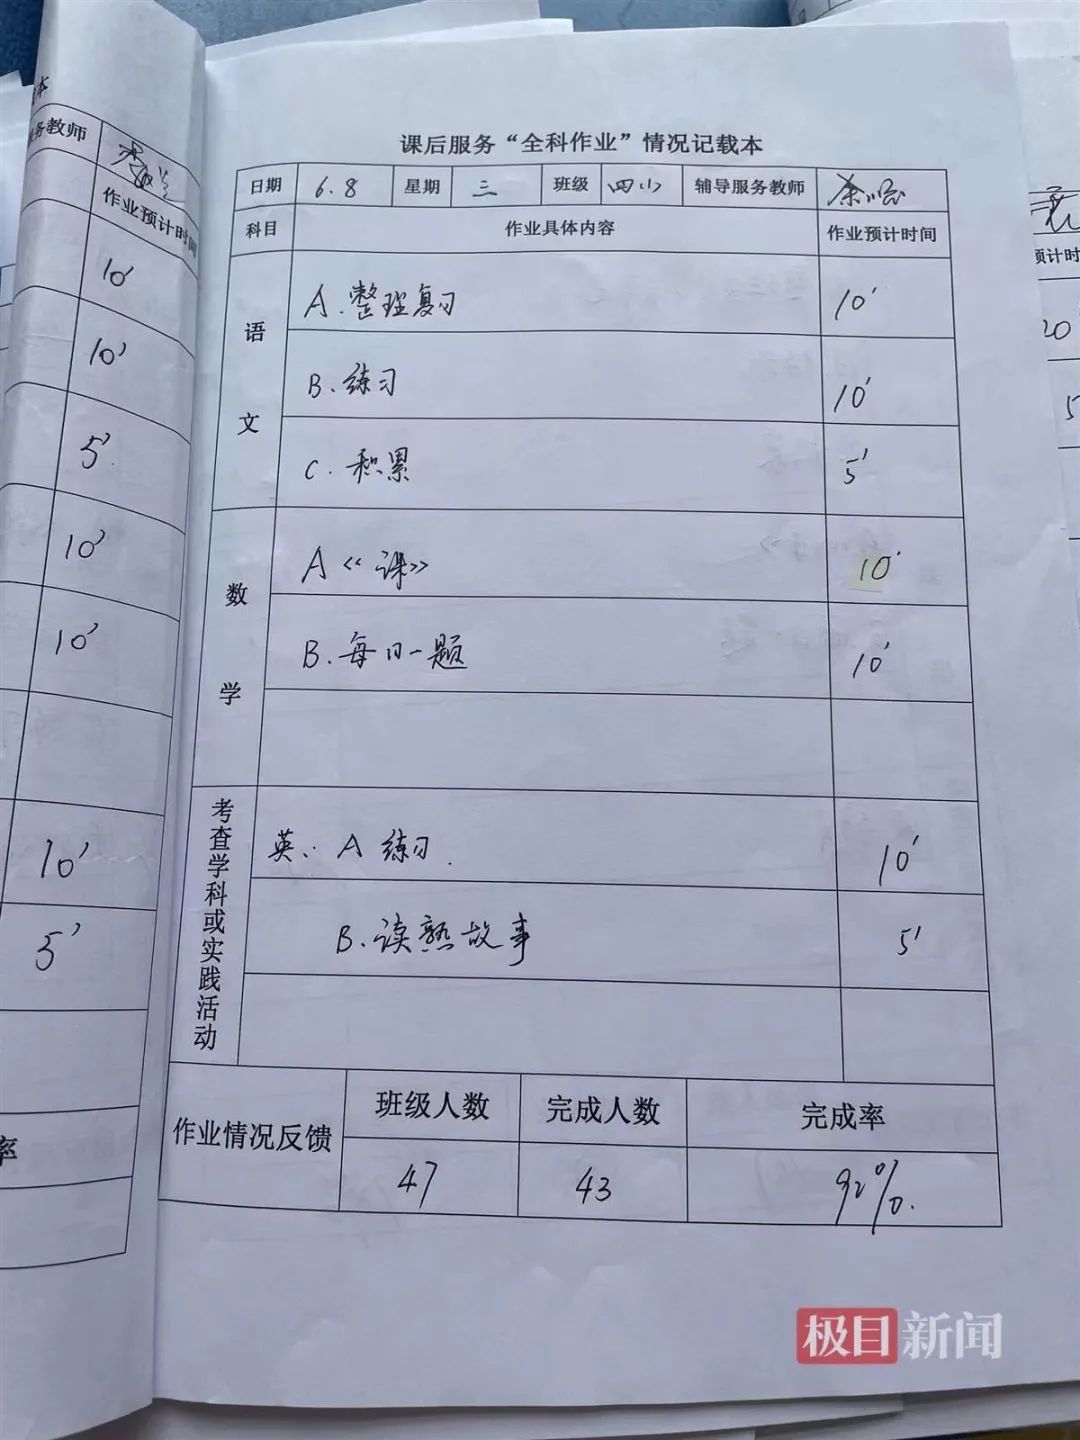 本
务教师
作业预计时间
10'
10'
5'
10'
10'
10'
5'
率
课后服务“全科作业”情况记载本
日期 6.8 星期 三 班级 四(1) 辅导服务教师
科目 作业具体内容 作业预计时间
语文
A.整理复习 10'
B.练习 10'
C.积累 5'
数学
A《课》 10'
B.每日一题 10'
考查学科或实践活动
英、A 练习. 10'
B.读熟故事 5'
作业情况反馈 班级人数 完成人数 完成率
47 43 92%.
预计时
20
5
极目新闻